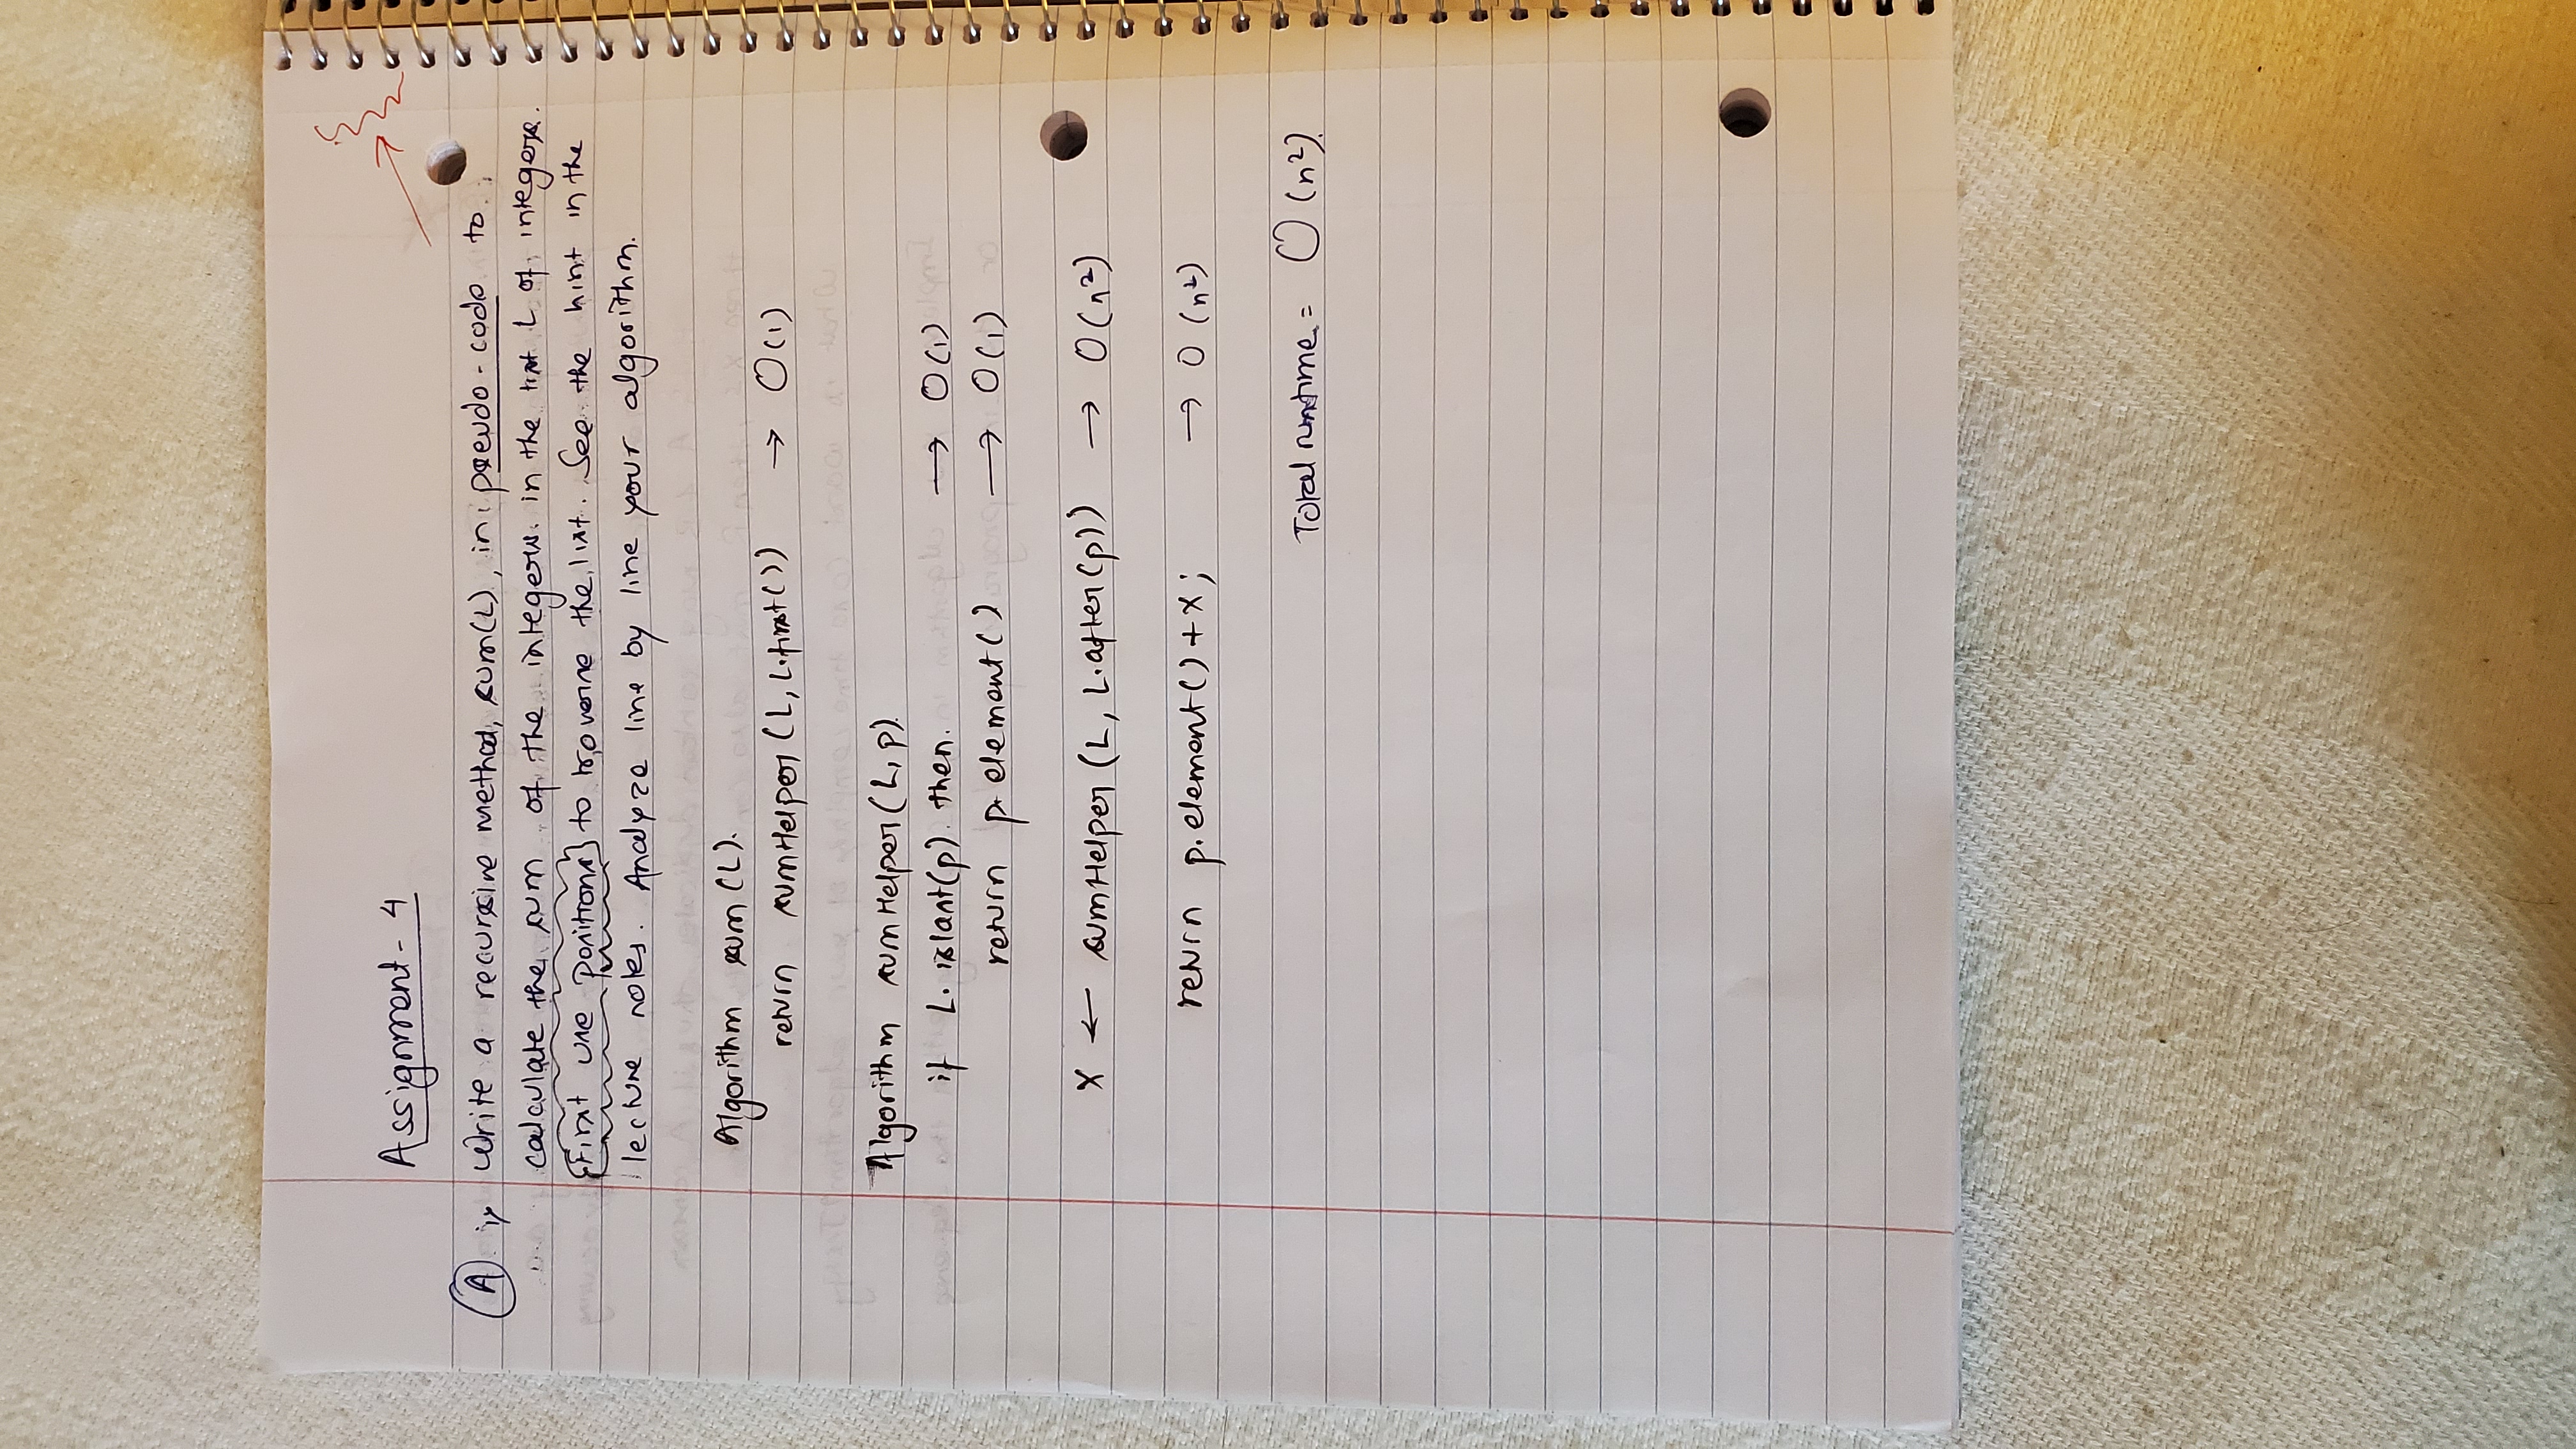 Assignment - 4
A i) Write a recursive method, sum(L), in pseudo-code to
calculate the sum of the integers in the list L of integers.
First use positions to traverse the list. See the hint in the
lecture notes. Analyze line by line your algorithm.
Algorithm sum (L).
return sumHelper (L, L.first()) → O(1)
Algorithm sumHelper (L, p).
if L. islast(p) then. → O(1)
return p. element() → O(1)
X ← sumHelper (L, L.after(p)) → O(n²)
return p. element() + X; → O(n²)
Total runtime = O(n²).